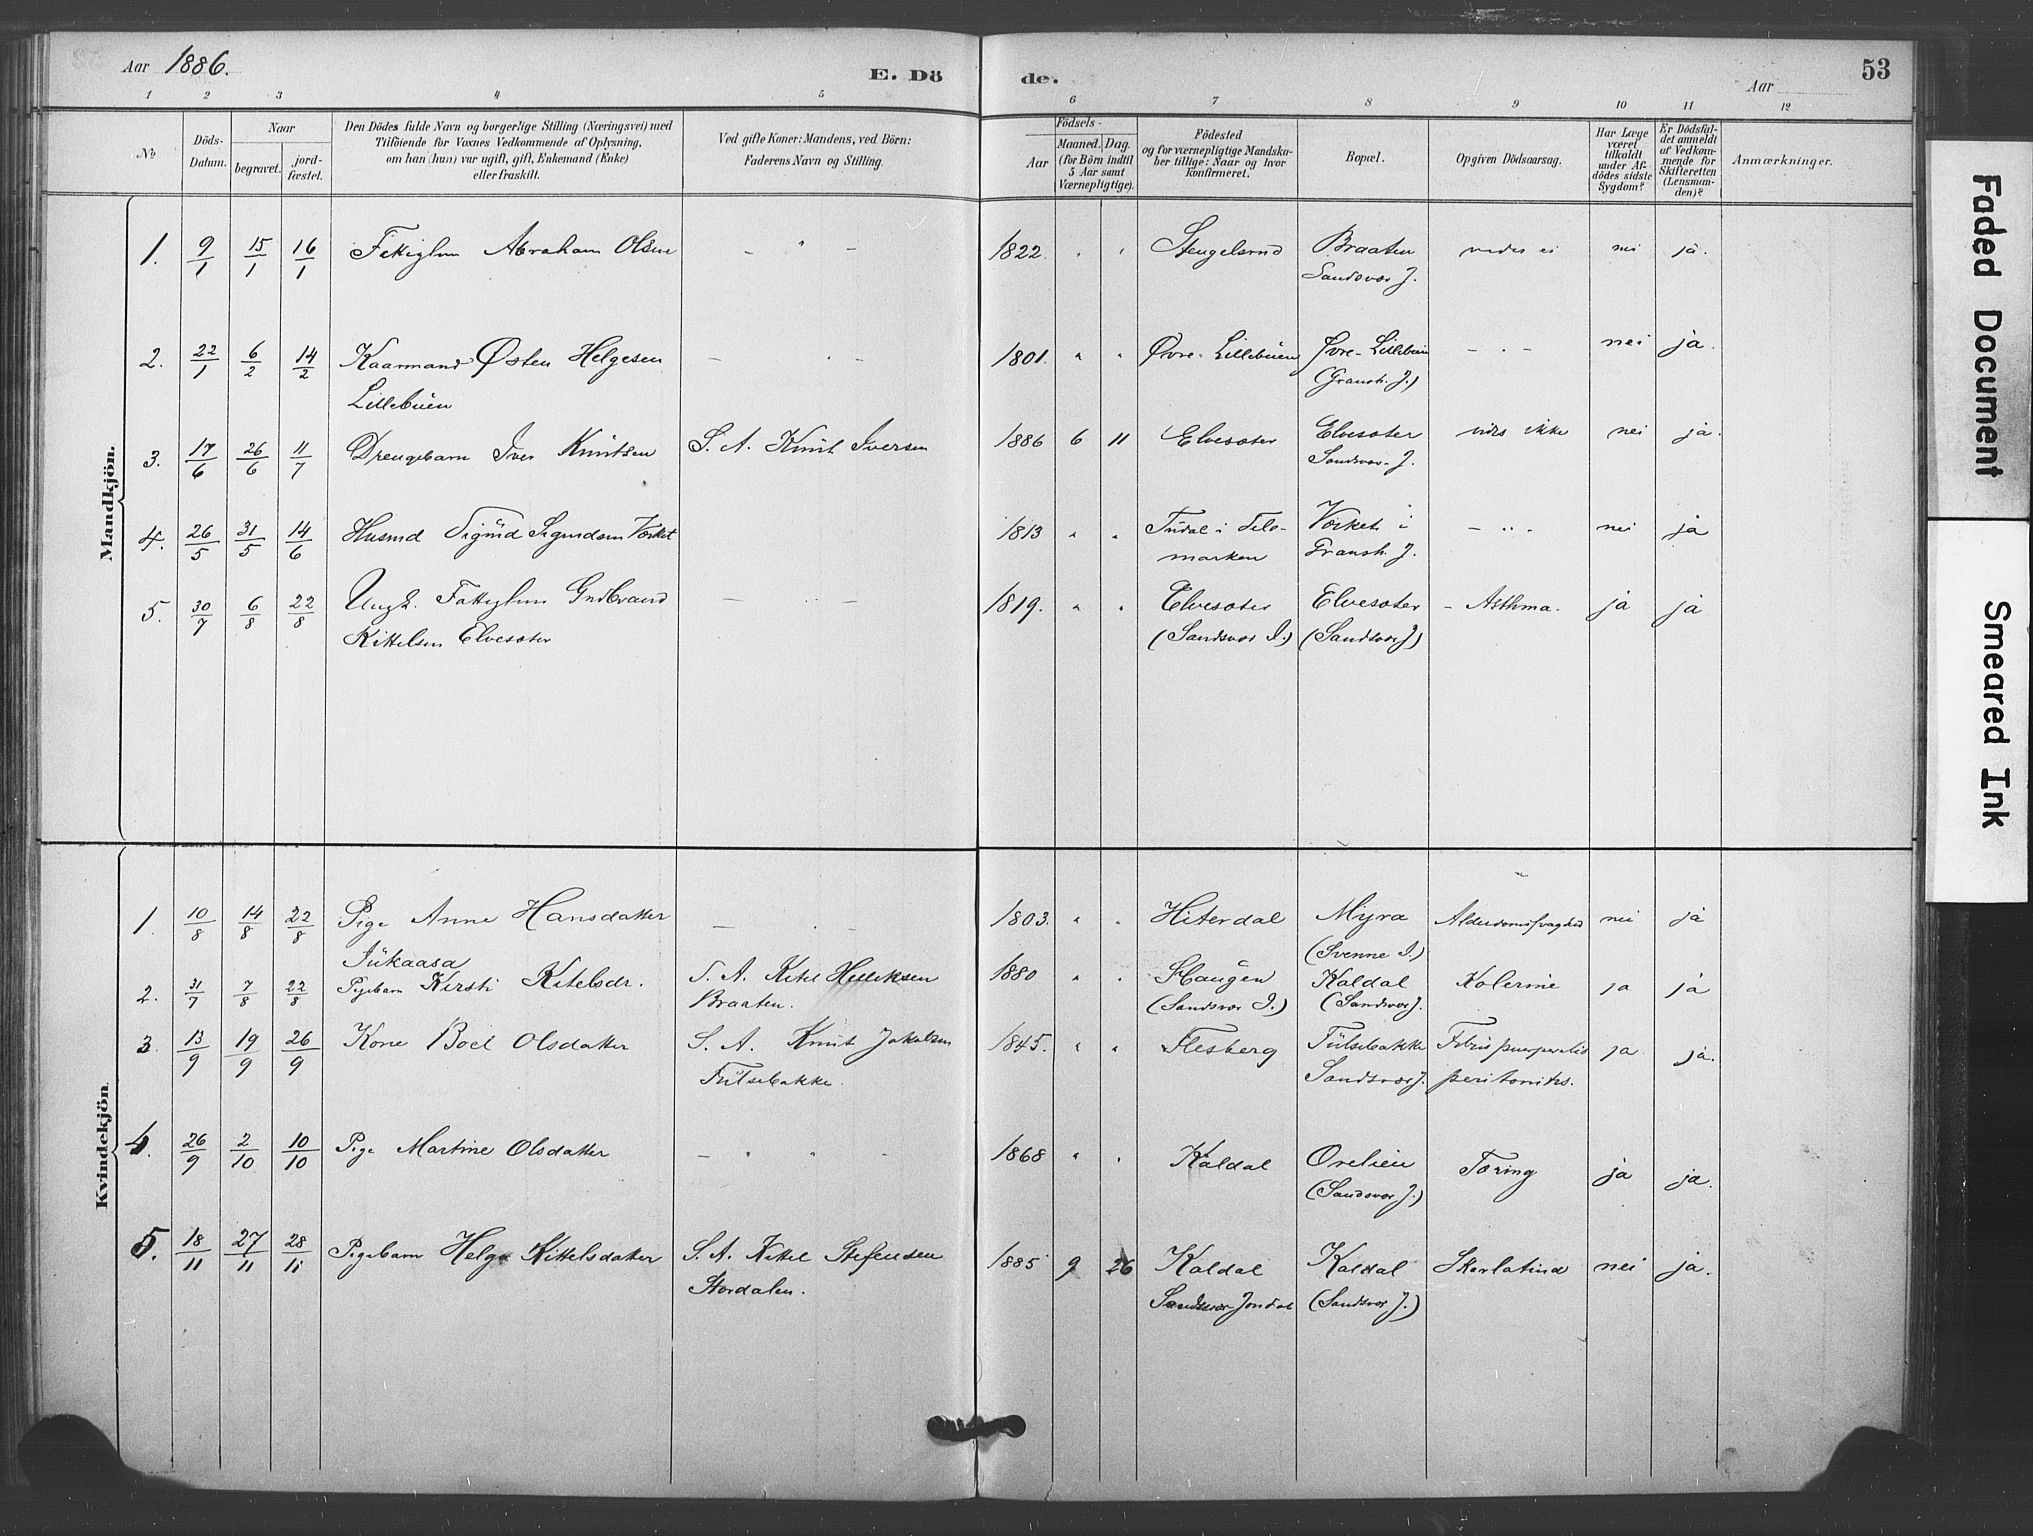 Aar 1886.
E. Dö
de.
Aar
53
1 2 3 4 5 6 7 8 9 10 11 12
No
Döds-
Datum.
Naar
begravet.
jord-
fæstet.
Den Dödes fulde Navn og borgerlige Stilling (Næringsvei) med
Tilföiende for Voxnes Vedkommende af Oplysning,
om han (hun) var ugift, gift, Enkemand (Enke)
eller fraskilt.
Ved gifte Koner: Mandens, ved Börn:
Faderens Navn og Stilling.
Födsels-
Aar
Maaned. Dag.
(for Börn indtil
5 Aar samt
Værnepligtige).
Födested
og for værnepligtige Mandska-
ber tillige: Naar og hvor
konfirmeret.
Bopæl.
Opgiven Dödsaarsag.
Har Læge
været
tilkaldt
under Af-
dödes sidste
Sygdom?
Er Dödsfal-
det anmeldt
af Vedkom-
mende for
Skifteretten
(Lensman-
den)?
Anmærkninger.
Mandkjön.
1. 9/1 15/1 16/1 Abraham Olsen - " - 1822. " " Stengelsrud Braaten nei ja.
Sandsvær J.
2. 22/1 6/2 14/2 Kaarmand Østen Helgesen - " - 1801. " " Øvre-Lillebuen Øvre-Lillebuen - " - nei ja.
Lillebuen (Gransh. J.)
3. 17/6 26/6 11/7 Drengebarn Iver Knutsen S. A. Knut Iversen 1886 6 11 Elvesæter Elvesæter vides ikke nei ja.
Sandsvær J.
4. 26/5 31/5 14/6 Husmd Sigurd Sigurdsen 1813 " " Tudal i Tele- i - " - nei ja
marken Gransh. J.
5. 30/7 6/8 22/8 Ungk. Fattiglem Gudbrand - " - 1819. " " Elvesæter Elvesæter - Asthma. ja ja
Kittelsen Elvesæter (Sandsvær J.) (Sandsvær J)
Kvindekjön
1. 10/8 14/8 22/8 Pige Anne Hansdatter - " - 1803. " " Hiterdal Myra Alderdomssvaghed nei ja
Jukaasa (Svenne J.)
2. 31/7 7/8 22/8 Pigebarn Kirsti Kitelsdr. S. A. Kitel Helliksen 1880 " " Haugen Kaldal Kolerine ja ja
Braaten. (Sandsvær J.) (Sandsvær J.
3. 13/9 19/9 26/9 Kone Boel Olsdatter S. A. Knut Jakobsen 1845. " " Flesberg Fulsebakke Febris puerperalis ja ja.
Fulsebakke. Sandsvær J. peritonitis.
4. 26/9 2/10 10/10 Pige Martine Olsdatter - " " - 1868 " " Kaldal Orelien Tæring ja ja.
(Sandsvær J.)
5. 18/11 27/11 28/11 Pigebarn Helge Kittelsdatter S. A. Kittel Stefensen 1885 9 26 Kaldal Kaldal Skarlatina nei ja.
Stordalen. Sandsvær Jondal (Sandsvær J.)
Faded Document
Smeared Ink